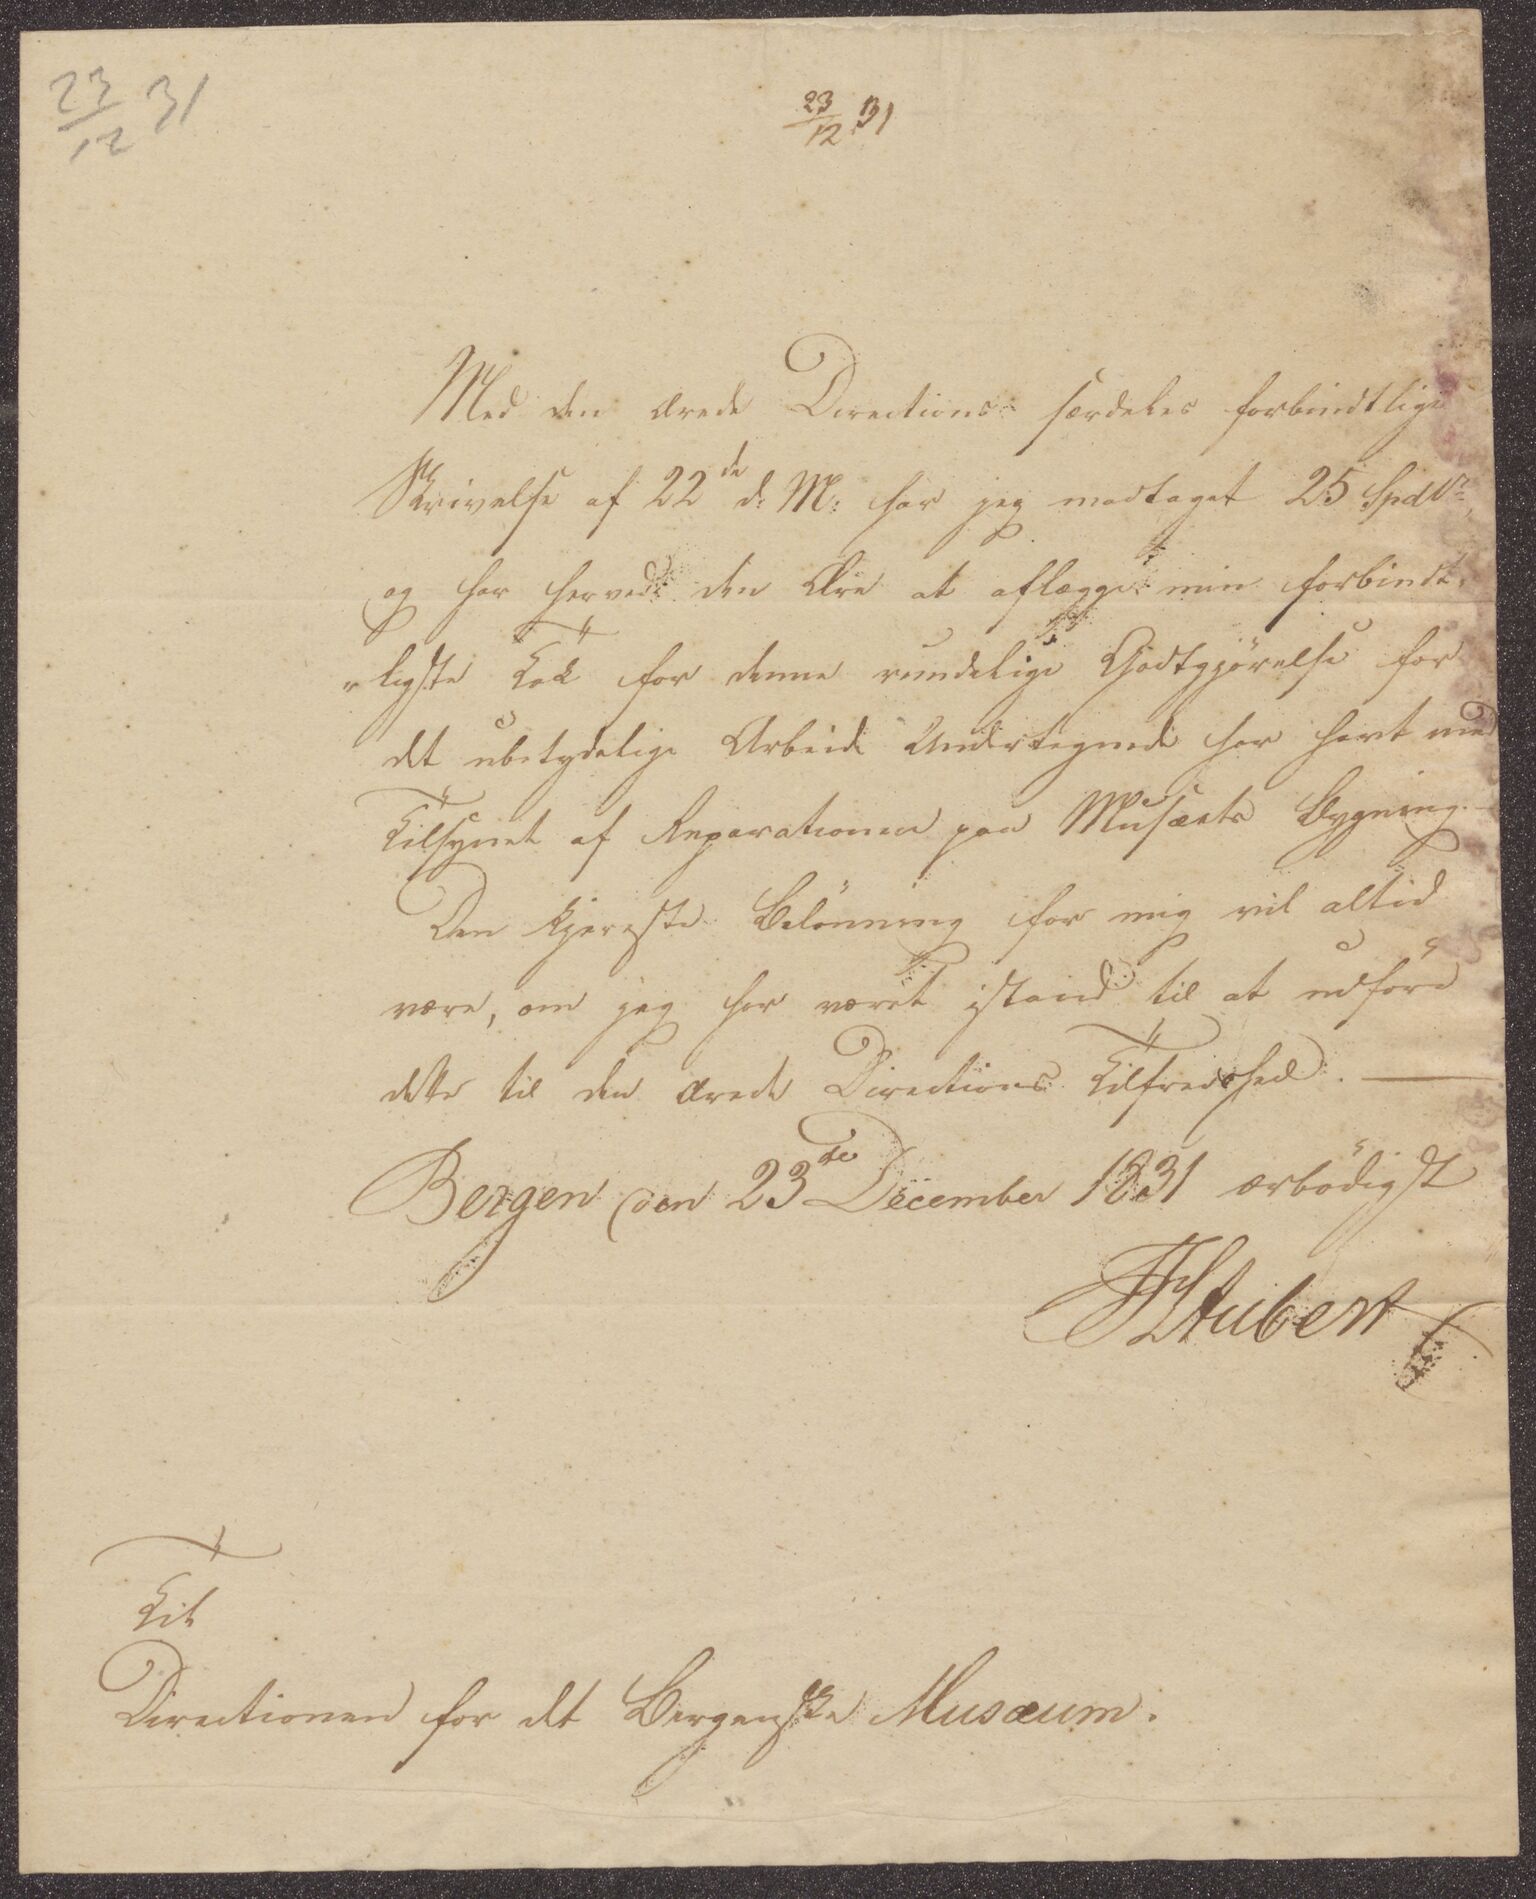 23/12 31
23/12 31
Med den ærede Directions særdeles forbindtlige
Skrivelse af 22de d: M: har jeg modtaget 25 Spdlr
og har herved den Ære at aflægge min forbindt-
ligste Tak for denne rundelige Godtgjörelse for
det ubetydelige Arbeide Undertegnede har havt med
Tilsynet af Reparationen paa Musæets Bygning.
Den kjereste Belönning for mig vil altid
være, om jeg har været istand til at udföre
dette til den ærede Directions Tilfredshed.
Bergen den 23de December 1831 ærbödigst
Stubert
Til
Directionen for det Bergenske Musæum.